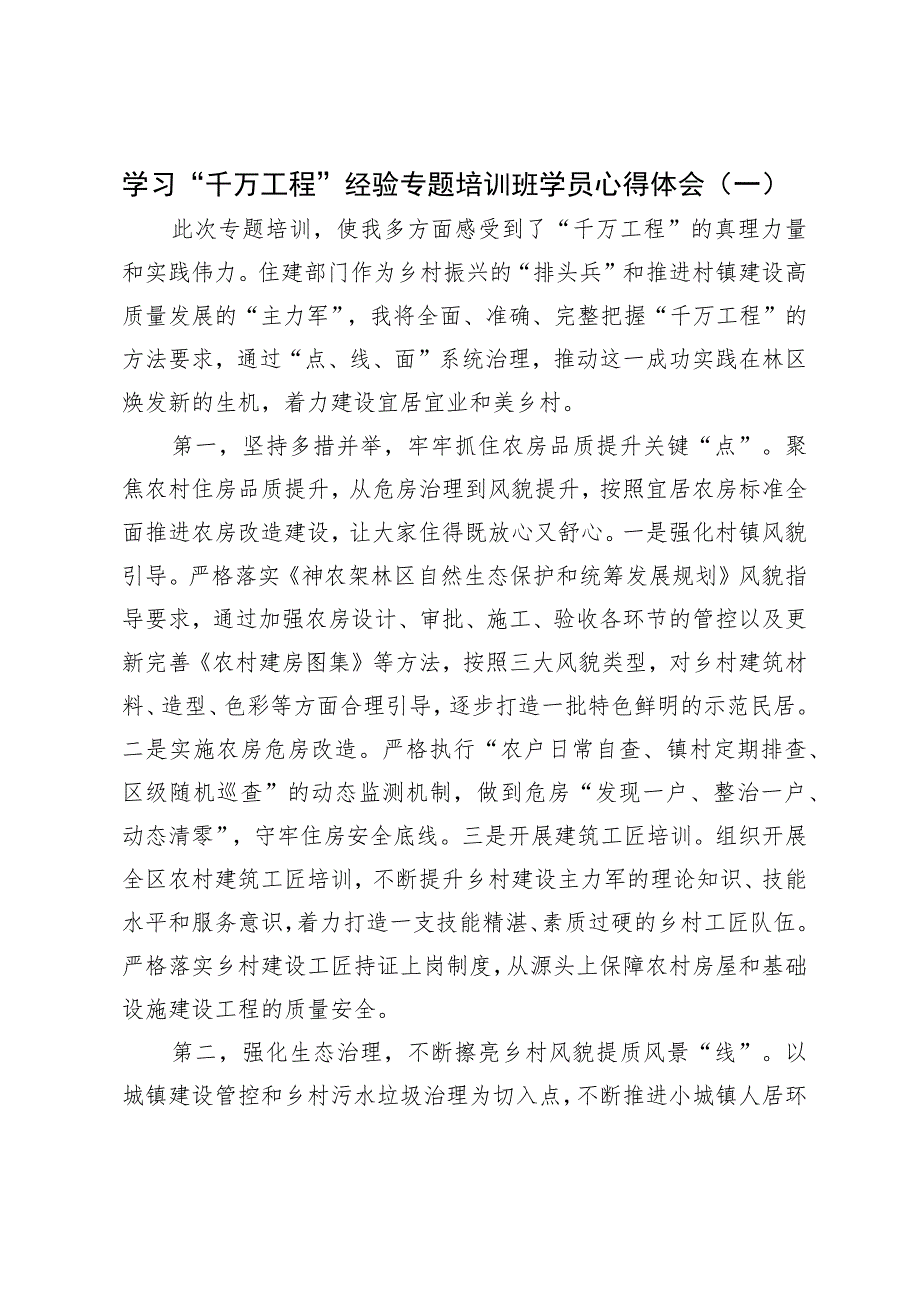 学习“千万工程”经验专题培训班学员心得体会（一）
此次专题培训，使我多方面感受到了“千万工程”的真理力量
和实践伟力。住建部门作为乡村振兴的“排头兵”和推进村镇建设高
质量发展的“主力军”，我将全面、准确、完整把握“千万工程”的
方法要求，通过“点、线、面”系统治理，推动这一成功实践在林区
焕发新的生机，着力建设宜居宜业和美乡村。
第一，坚持多措并举，牢牢抓住农房品质提升关键“点”。聚
焦农村住房品质提升，从危房治理到风貌提升，按照宜居农房标准全
面推进农房改造建设，让大家住得既放心又舒心。一是强化村镇风貌
引导。严格落实《神农架林区自然生态保护和统筹发展规划》风貌指
导要求，通过加强农房设计、审批、施工、验收各环节的管控以及更
新完善《农村建房图集》等方法，按照三大风貌类型，对乡村建筑材
料、造型、色彩等方面合理引导，逐步打造一批特色鲜明的示范民居。
二是实施农房危房改造。严格执行“农户日常自查、镇村定期排查、
区级随机巡查”的动态监测机制，做到危房“发现一户、整治一户、
动态清零”，守牢住房安全底线。三是开展建筑工匠培训。组织开展
全区农村建筑工匠培训，不断提升乡村建设主力军的理论知识、技能
水平和服务意识，着力打造一支技能精湛、素质过硬的乡村工匠队伍。
严格落实乡村建设工匠持证上岗制度，从源头上保障农村房屋和基础
设施建设工程的质量安全。
第二，强化生态治理，不断擦亮乡村风貌提质风景“线”。以
城镇建设管控和乡村污水垃圾治理为切入点，不断推进小城镇人居环